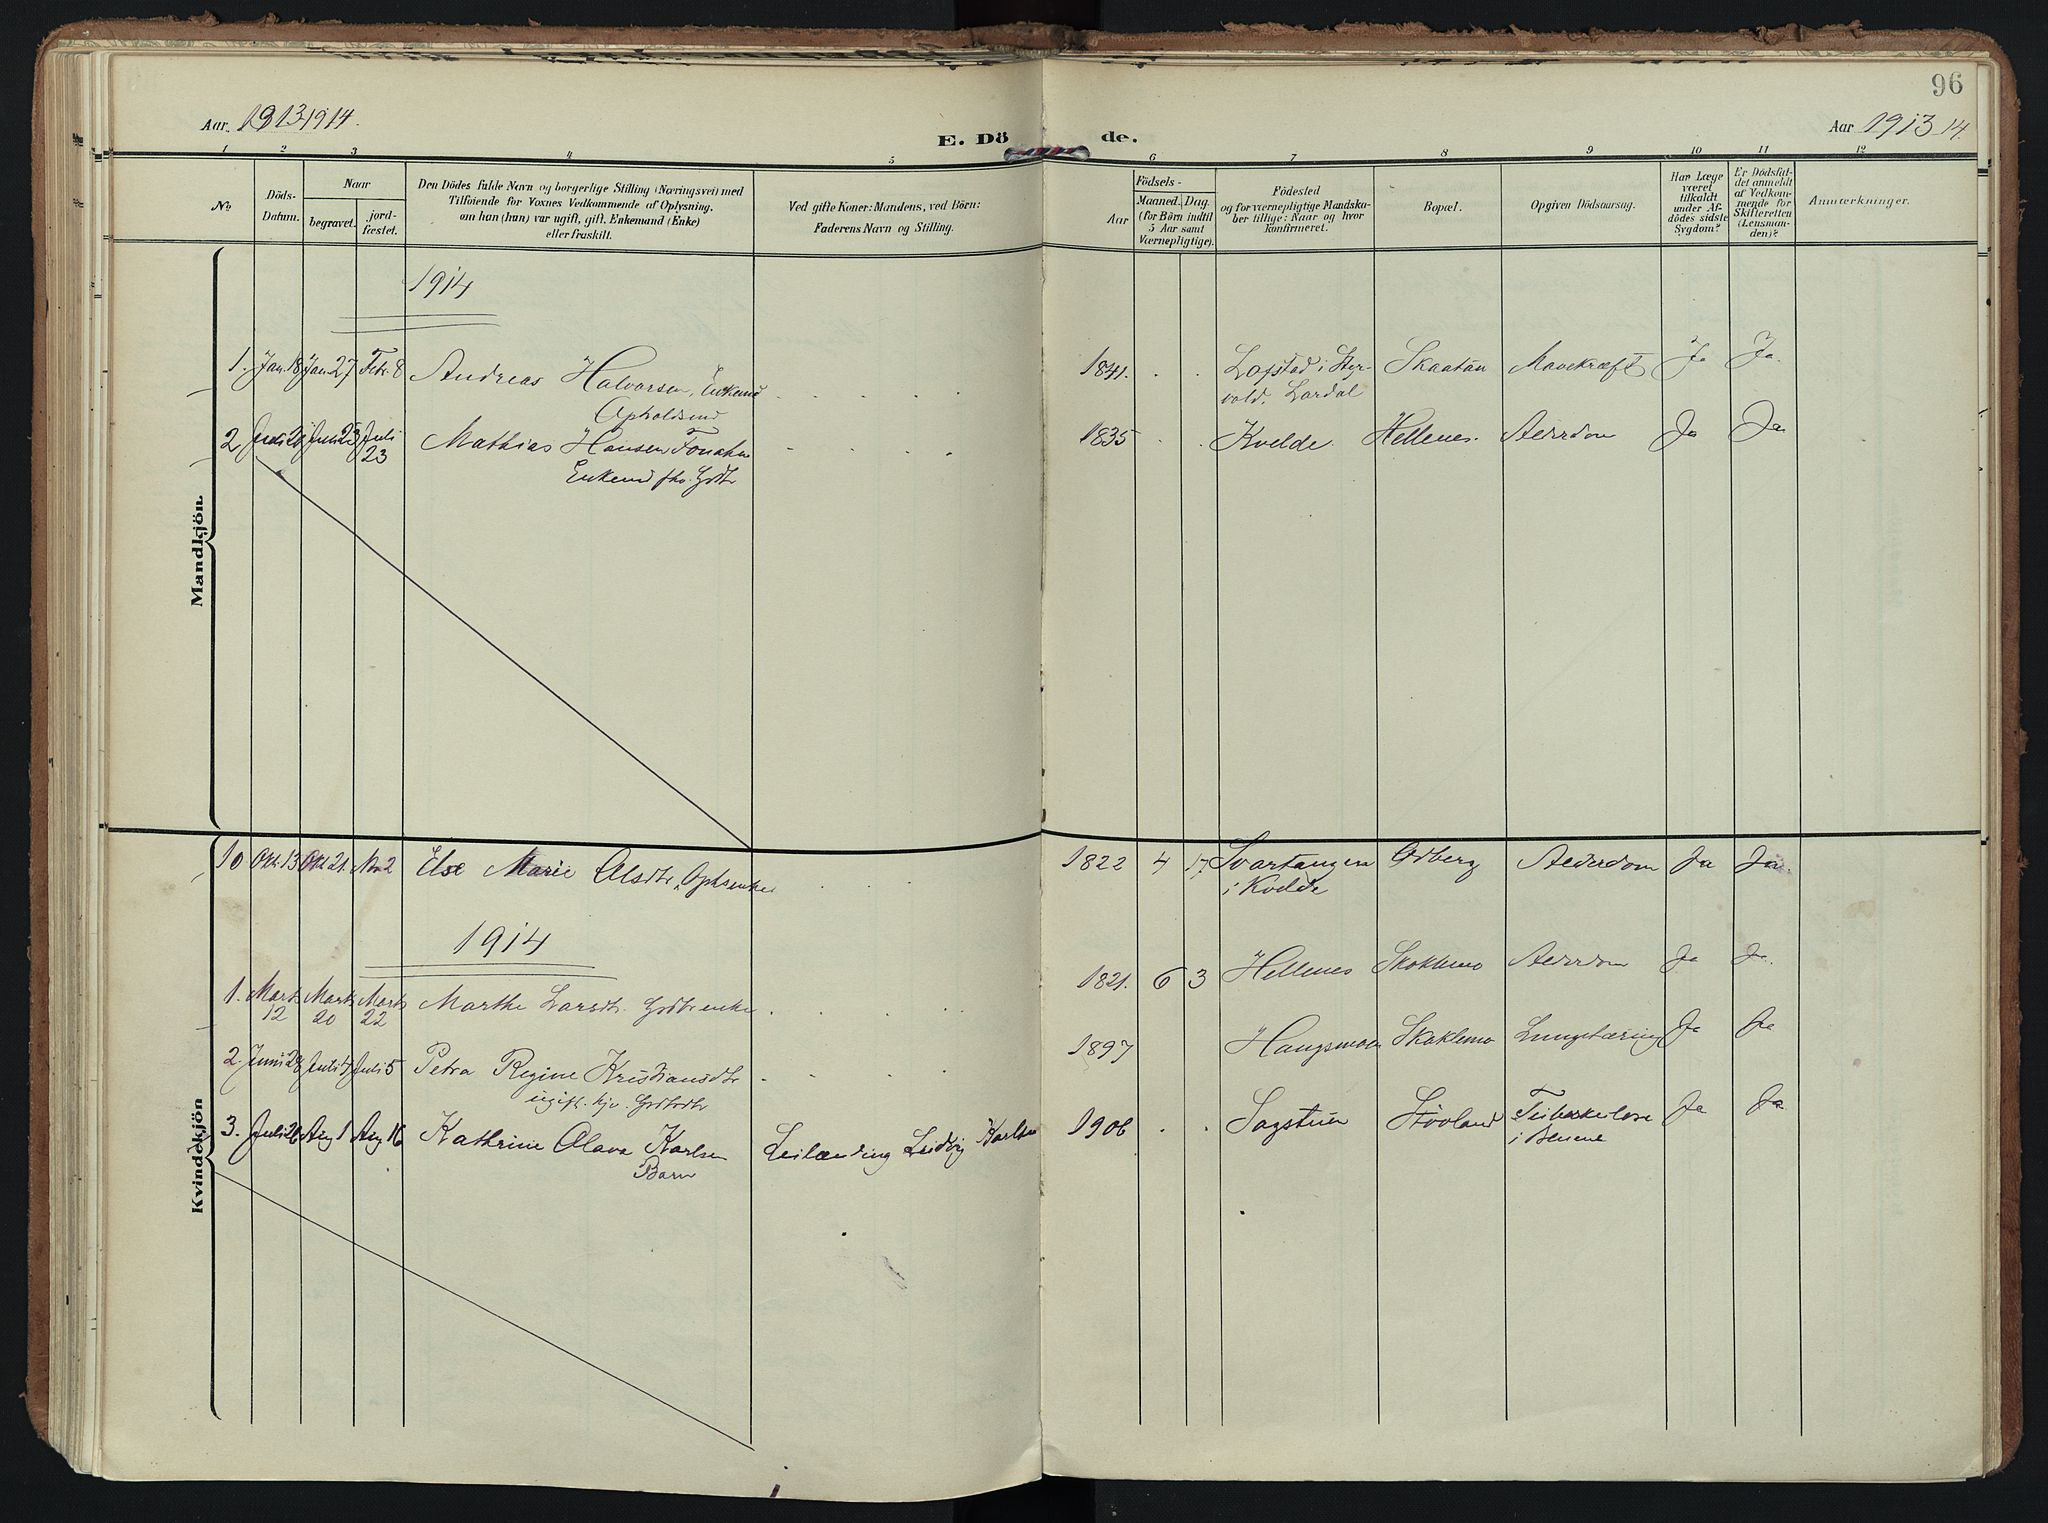 96
Aar. 1913-1914.
E. Dö de.
Aar 1913 14.
1 2 3 4 5 6 7 8 9 10 11 12
No
Döds-
Datum.
Naar
begravet.
jord-
fæstet.
Den Dödes fulde Navn og borgerlige Stilling (Næringsvei) med
Tilføiende for Voxnes Vedkommende af Oplysning,
om han (hun) var ugift, gift, Enkemand (Enke)
eller fraskilt.
Ved gifte Koner: Mandens, ved Börn:
Faderens Navn og Stilling.
Födsels-
Aar
Maaned. Dag.
(for Börn indtil
5 Aar samt
Værnepligtige).
Födested
og for værnepligtige Mandska-
ber tillige: Naar og hvor
konfirmeret.
Bopæl.
Opgiven Dödsaarsag.
Har Læge
været
tilkaldt
under Af-
dödes sidste
Sygdom?
Er Dödsfal-
det anmeldt
af Vedkom-
mende for
Skifteretten
(Lensman-
den)?
Anmærkninger.
Mandkjön.
1914
1. Jan. 18 Jan. 27 Febr. 8 Andreas Halvorsen, Enkemd 1841. Lopstad i Styr- Skaatan Mavekræft Ja Ja.
Opholdsmd vold. Lardal
2 Juli 21 Juli 23 Juli Mathias Hansen 1835 Kvelde. Hellenes. Alderdom Ja Ja
23
Enkemd fhv. Grdbr
Kvindekjön
10 Okt. 13 Okt 21. Nov 2 Else Marie Olsdtr, Opksenke 1822 4 17. Svartangen Odberg Alderdom Ja Ja.
i Kvelde
1914
1. Marts Marts Marts Marthe Larsdtr. Grdbrenke 1821. 6 3 Hellenes Skoklemo Alderdom Ja Ja.
12 20 22
2. Juni 28 Juli 4 Juli 5 Petra Regine Kristiansdtr 1897 Haugsmoen Skoklemo Lungetæring Ja Ja
ugift.
3. Juli 26 Aug 1 Aug 16 Kathrine Olava Karlsen Leilænding Ludvig Karlsen 1906 Sagstuen Stövland Tuberkulose Ja Ja
Barn i Benene